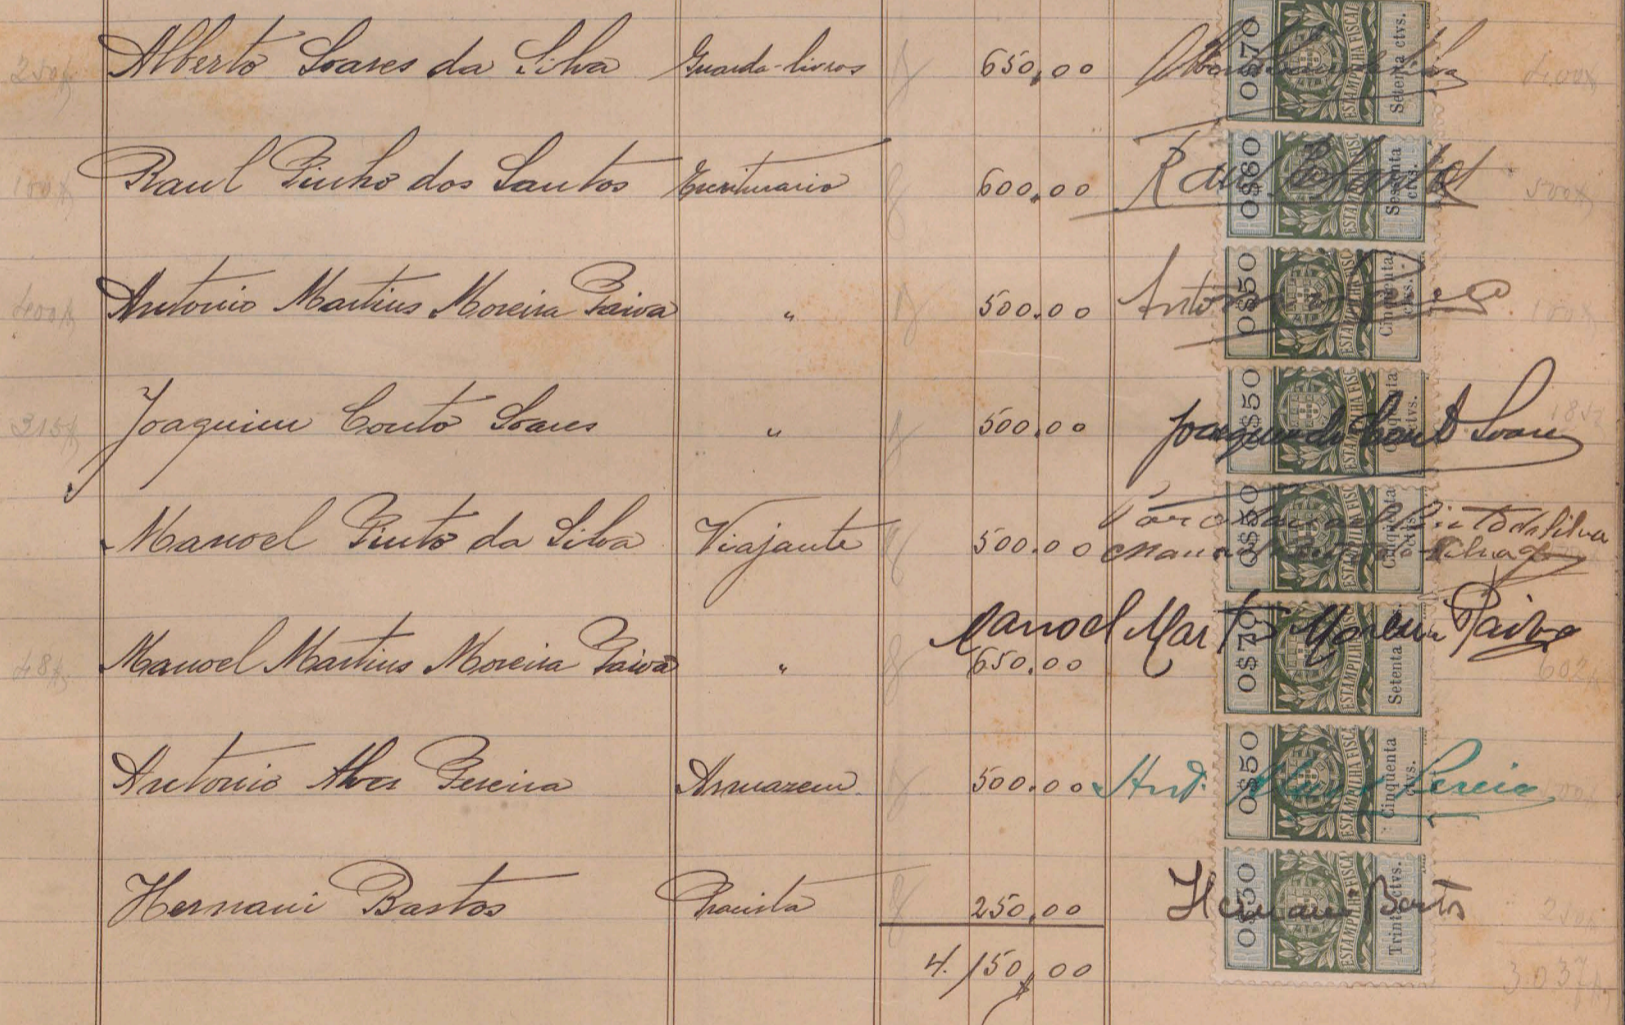 250$ Alberto Soares da Silva Guarda-livros 650,00 0$70 ESTAMPILHA FISCAL Setenta ctvs.
100$ Raul Pinho dos Santos Escriturario 600,00 Raul 0$60 ESTAMPILHA FISC Sessenta ctvs. 500$
400$ Antonio Martins Moreira Paiva " 500,00 Antonio 0$50 ESTAMPILHA FISC Cinquenta ctvs. 100$
315$ Joaquim Couto Soares " 500,00 Joaquim do Couto Soares 0$50 ESTAMPILHA FISC Cinquenta ctvs.
Manoel Pinto da Silva Viajante 500,00 0$50 ESTAMPILHA FISC Cinquenta ctvs. Pinto da Silva
Manoel Martins Moreira Paiva
48$ Manoel Martins Moreira Paiva " 650,00 0$70 ESTAMPILHA FISCAL Setenta ctvs. 602$
Antonio Alves Pereira Armazem 500,00 Antº. Alves Pereira 0$50 ESTAMPILHA FISCAL Cinquenta ctvs.
Hernani Bastos Pracista 250,00 Hernani Bastos 0$30 ESTAMPILHA FISCAL Trinta ctvs. 250$
4.150,00 3.037$